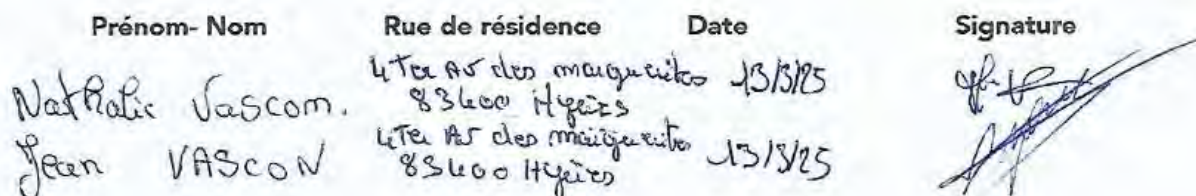 Prénom- Nom Rue de résidence Date Signature
Nathalie Vascom. 4 Ter Av des marguerites 13/3/25
83400 Hyères
Jean VASCON 4 Ter Av des marguerites 13/3/25
83400 Hyères